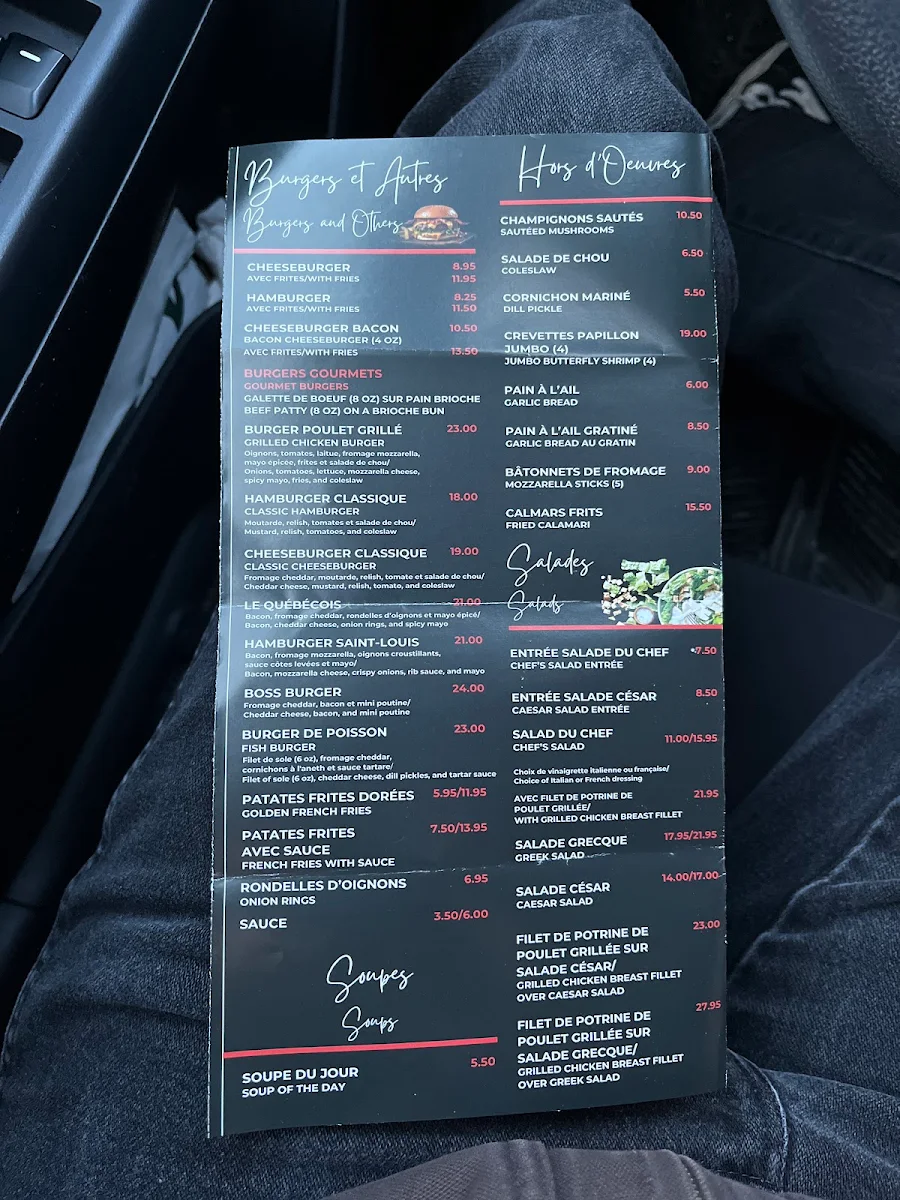 Burgers et Autres
Burgers and Others
CHEESEBURGER 8.95
AVEC FRITES/WITH FRIES 11.95
HAMBURGER 8.25
AVEC FRITES/WITH FRIES 11.50
CHEESEBURGER BACON 10.50
BACON CHEESEBURGER (4 OZ)
AVEC FRITES/WITH FRIES 13.50
BURGERS GOURMETS
GOURMET BURGERS
GALETTE DE BOEUF (8 OZ) SUR PAIN BRIOCHE
BEEF PATTY (8 OZ) ON A BRIOCHE BUN
BURGER POULET GRILLÉ 23.00
GRILLED CHICKEN BURGER
Oignons, tomates, laitue, fromage mozzarella,
mayo épicée, frites et salade de chou/
Onions, tomatoes, lettuce, mozzarella cheese,
spicy mayo, fries, and coleslaw
HAMBURGER CLASSIQUE 18.00
CLASSIC HAMBURGER
Moutarde, relish, tomates et salade de chou/
Mustard, relish, tomatoes, and coleslaw
CHEESEBURGER CLASSIQUE 19.00
CLASSIC CHEESEBURGER
Fromage cheddar, moutarde, relish, tomate et salade de chou/
Cheddar cheese, mustard, relish, tomato, and coleslaw
LE QUÉBÉCOIS 21.00
Bacon, fromage cheddar, rondelles d'oignons et mayo épicé/
Bacon, cheddar cheese, onion rings, and spicy mayo
HAMBURGER SAINT-LOUIS 21.00
Bacon, fromage mozzarella, oignons croustillants,
sauce côtes levées et mayo/
Bacon, mozzarella cheese, crispy onions, rib sauce, and mayo
BOSS BURGER 24.00
Fromage cheddar, bacon et mini poutine/
Cheddar cheese, bacon, and mini poutine
BURGER DE POISSON 23.00
FISH BURGER
Filet de sole (6 oz), fromage cheddar,
cornichons à l'aneth et sauce tartare/
Filet of sole (6 oz), cheddar cheese, dill pickles, and tartar sauce
PATATES FRITES DORÉES 5.95/11.95
GOLDEN FRENCH FRIES
PATATES FRITES 7.50/13.95
AVEC SAUCE
FRENCH FRIES WITH SAUCE
RONDELLES D'OIGNONS 6.95
ONION RINGS
SAUCE 3.50/6.00
Soupes
Soups
SOUPE DU JOUR 5.50
SOUP OF THE DAY
Hors d'Oeuvres
CHAMPIGNONS SAUTÉS 10.50
SAUTÉED MUSHROOMS
SALADE DE CHOU 6.50
COLESLAW
CORNICHON MARINÉ 5.50
DILL PICKLE
CREVETTES PAPILLON 19.00
JUMBO (4)
JUMBO BUTTERFLY SHRIMP (4)
PAIN À L'AIL 6.00
GARLIC BREAD
PAIN À L'AIL GRATINÉ 8.50
GARLIC BREAD AU GRATIN
BÂTONNETS DE FROMAGE 9.00
MOZZARELLA STICKS (5)
CALMARS FRITS 15.50
FRIED CALAMARI
Salades
Salads
ENTRÉE SALADE DU CHEF 7.50
CHEF'S SALAD ENTRÉE
ENTRÉE SALADE CÉSAR 8.50
CAESAR SALAD ENTRÉE
SALAD DU CHEF 11.00/15.95
CHEF'S SALAD
Choix de vinaigrette italienne ou française/
Choice of Italian or French dressing
AVEC FILET DE POTRINE DE 21.95
POULET GRILLÉE/
WITH GRILLED CHICKEN BREAST FILLET
SALADE GRECQUE 17.95/21.95
GREEK SALAD
SALADE CÉSAR 14.00/17.00
CAESAR SALAD
FILET DE POTRINE DE 23.00
POULET GRILLÉE SUR
SALADE CÉSAR/
GRILLED CHICKEN BREAST FILLET
OVER CAESAR SALAD
FILET DE POTRINE DE 27.95
POULET GRILLÉE SUR
SALADE GRECQUE/
GRILLED CHICKEN BREAST FILLET
OVER GREEK SALAD